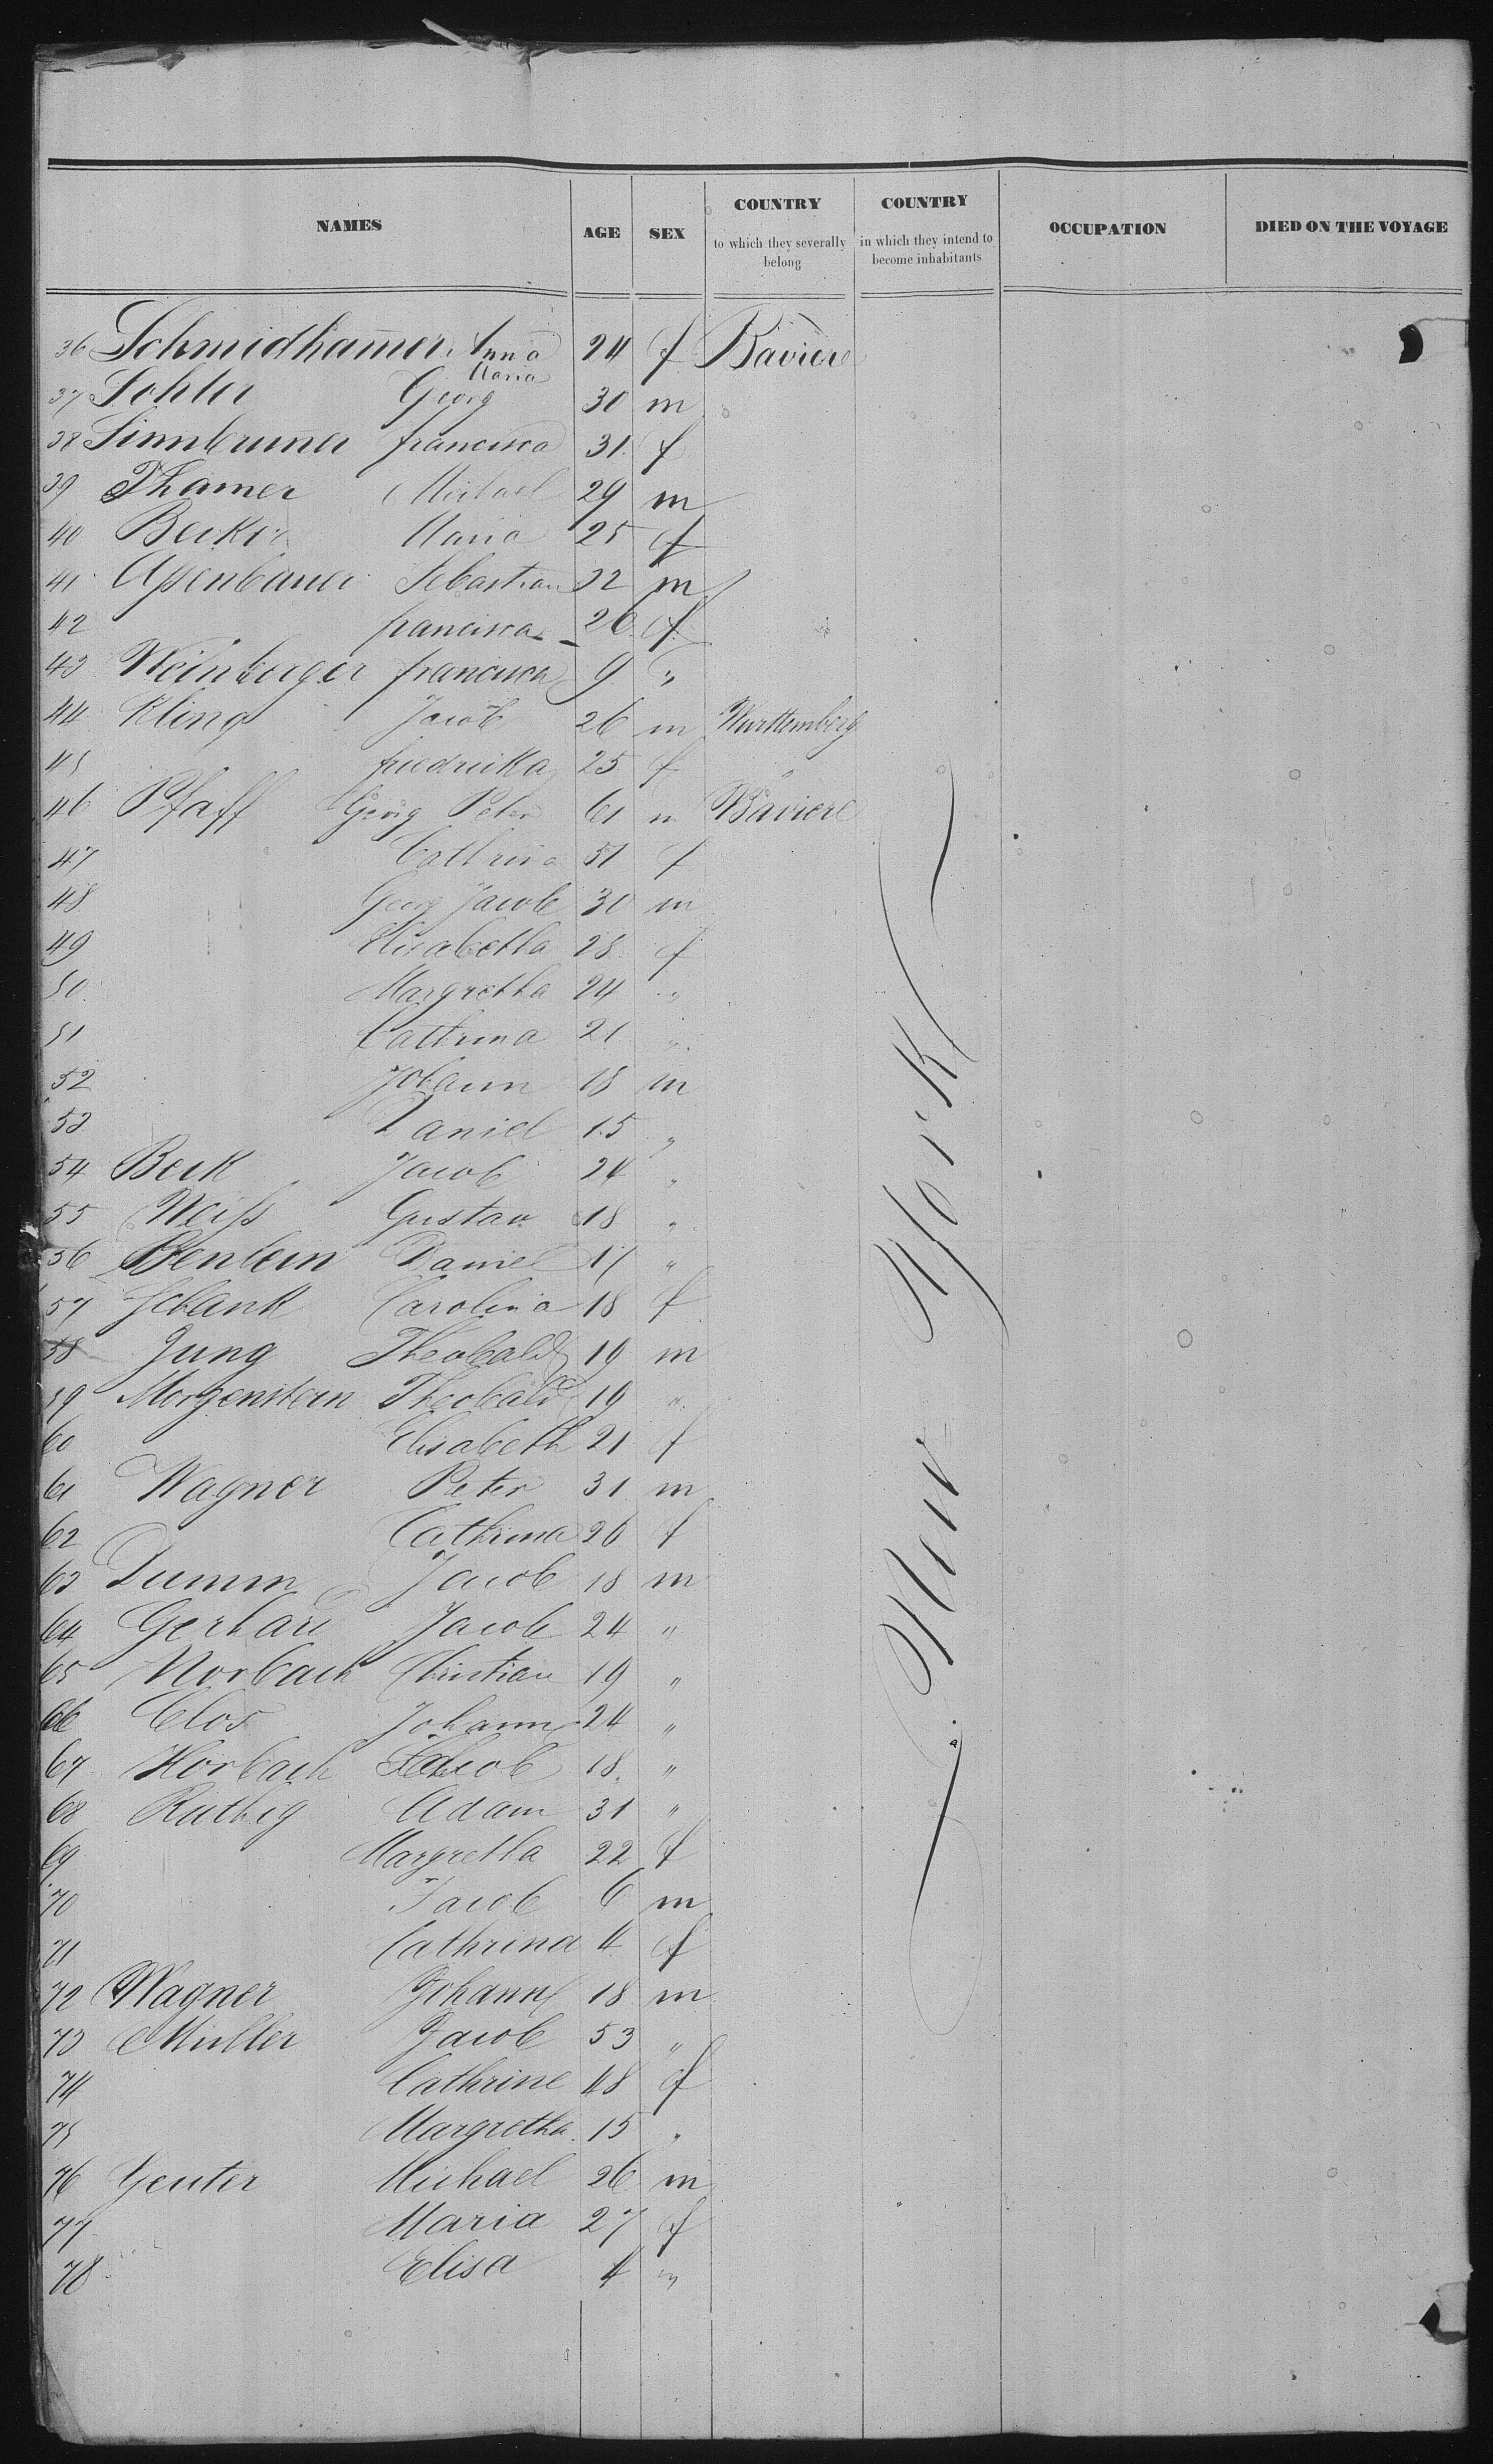 NAMES AGE SEX COUNTRY to which they severally belong COUNTRY in which they intend to become inhabitants OCCUPATION DIED ON THE VOYAGE
36 Schmidham̄er Anna Maria 24 f Baviere
37 Sohler Georg 30 m
38 Sinnbruner francisca 31 f
39 Thamer Michael 29 m
40 Becker Maria 25 f
41 Assenbauer Sebastian 32 m
42 francisca 26 f
43 Weinberger francisca 9 "
44 Kling Jacob 26 m Wurttemberg
45 friedricka 25 f "
46 Pfaff Georg Peter 61 m Baviere
47 Cathrina 51 f
48 Georg Jacob 30 m
49 Elisabetha 28 f
50 Margretha 24 "
51 Cathrina 21 "
52 Johann 18 m
53 Daniel 15 "
54 Beck Jacob 24 "
55 Weiss Gustav 18 "
56 Daniel 17 "
57 Schank Carolina 18 f
58 Jung Theobald 19 m
59 Morgenstern Theobald 19 "
60 Elisabeth 21 f
61 Wagner Peter 31 m
62 Cathrina 26 f
63 Dumm Jacob 18 m
64 Gerhard Jacob 24 "
65 Morbach Christian 19 "
66 Clos Johann 24 "
67 Horbach Jacob 18 "
68 Rathig Adam 31 "
69 Margretha 22 f
70 Jacob 6 m
71 Cathrina 4 f
72 Wagner Johann 18 m
73 Müller Jacob 53 "
74 Cathrine 48 f
75 Margretha 15 "
76 Genter Michael 26 m
77 Maria 27 f
78 Elisa 4 "
New York